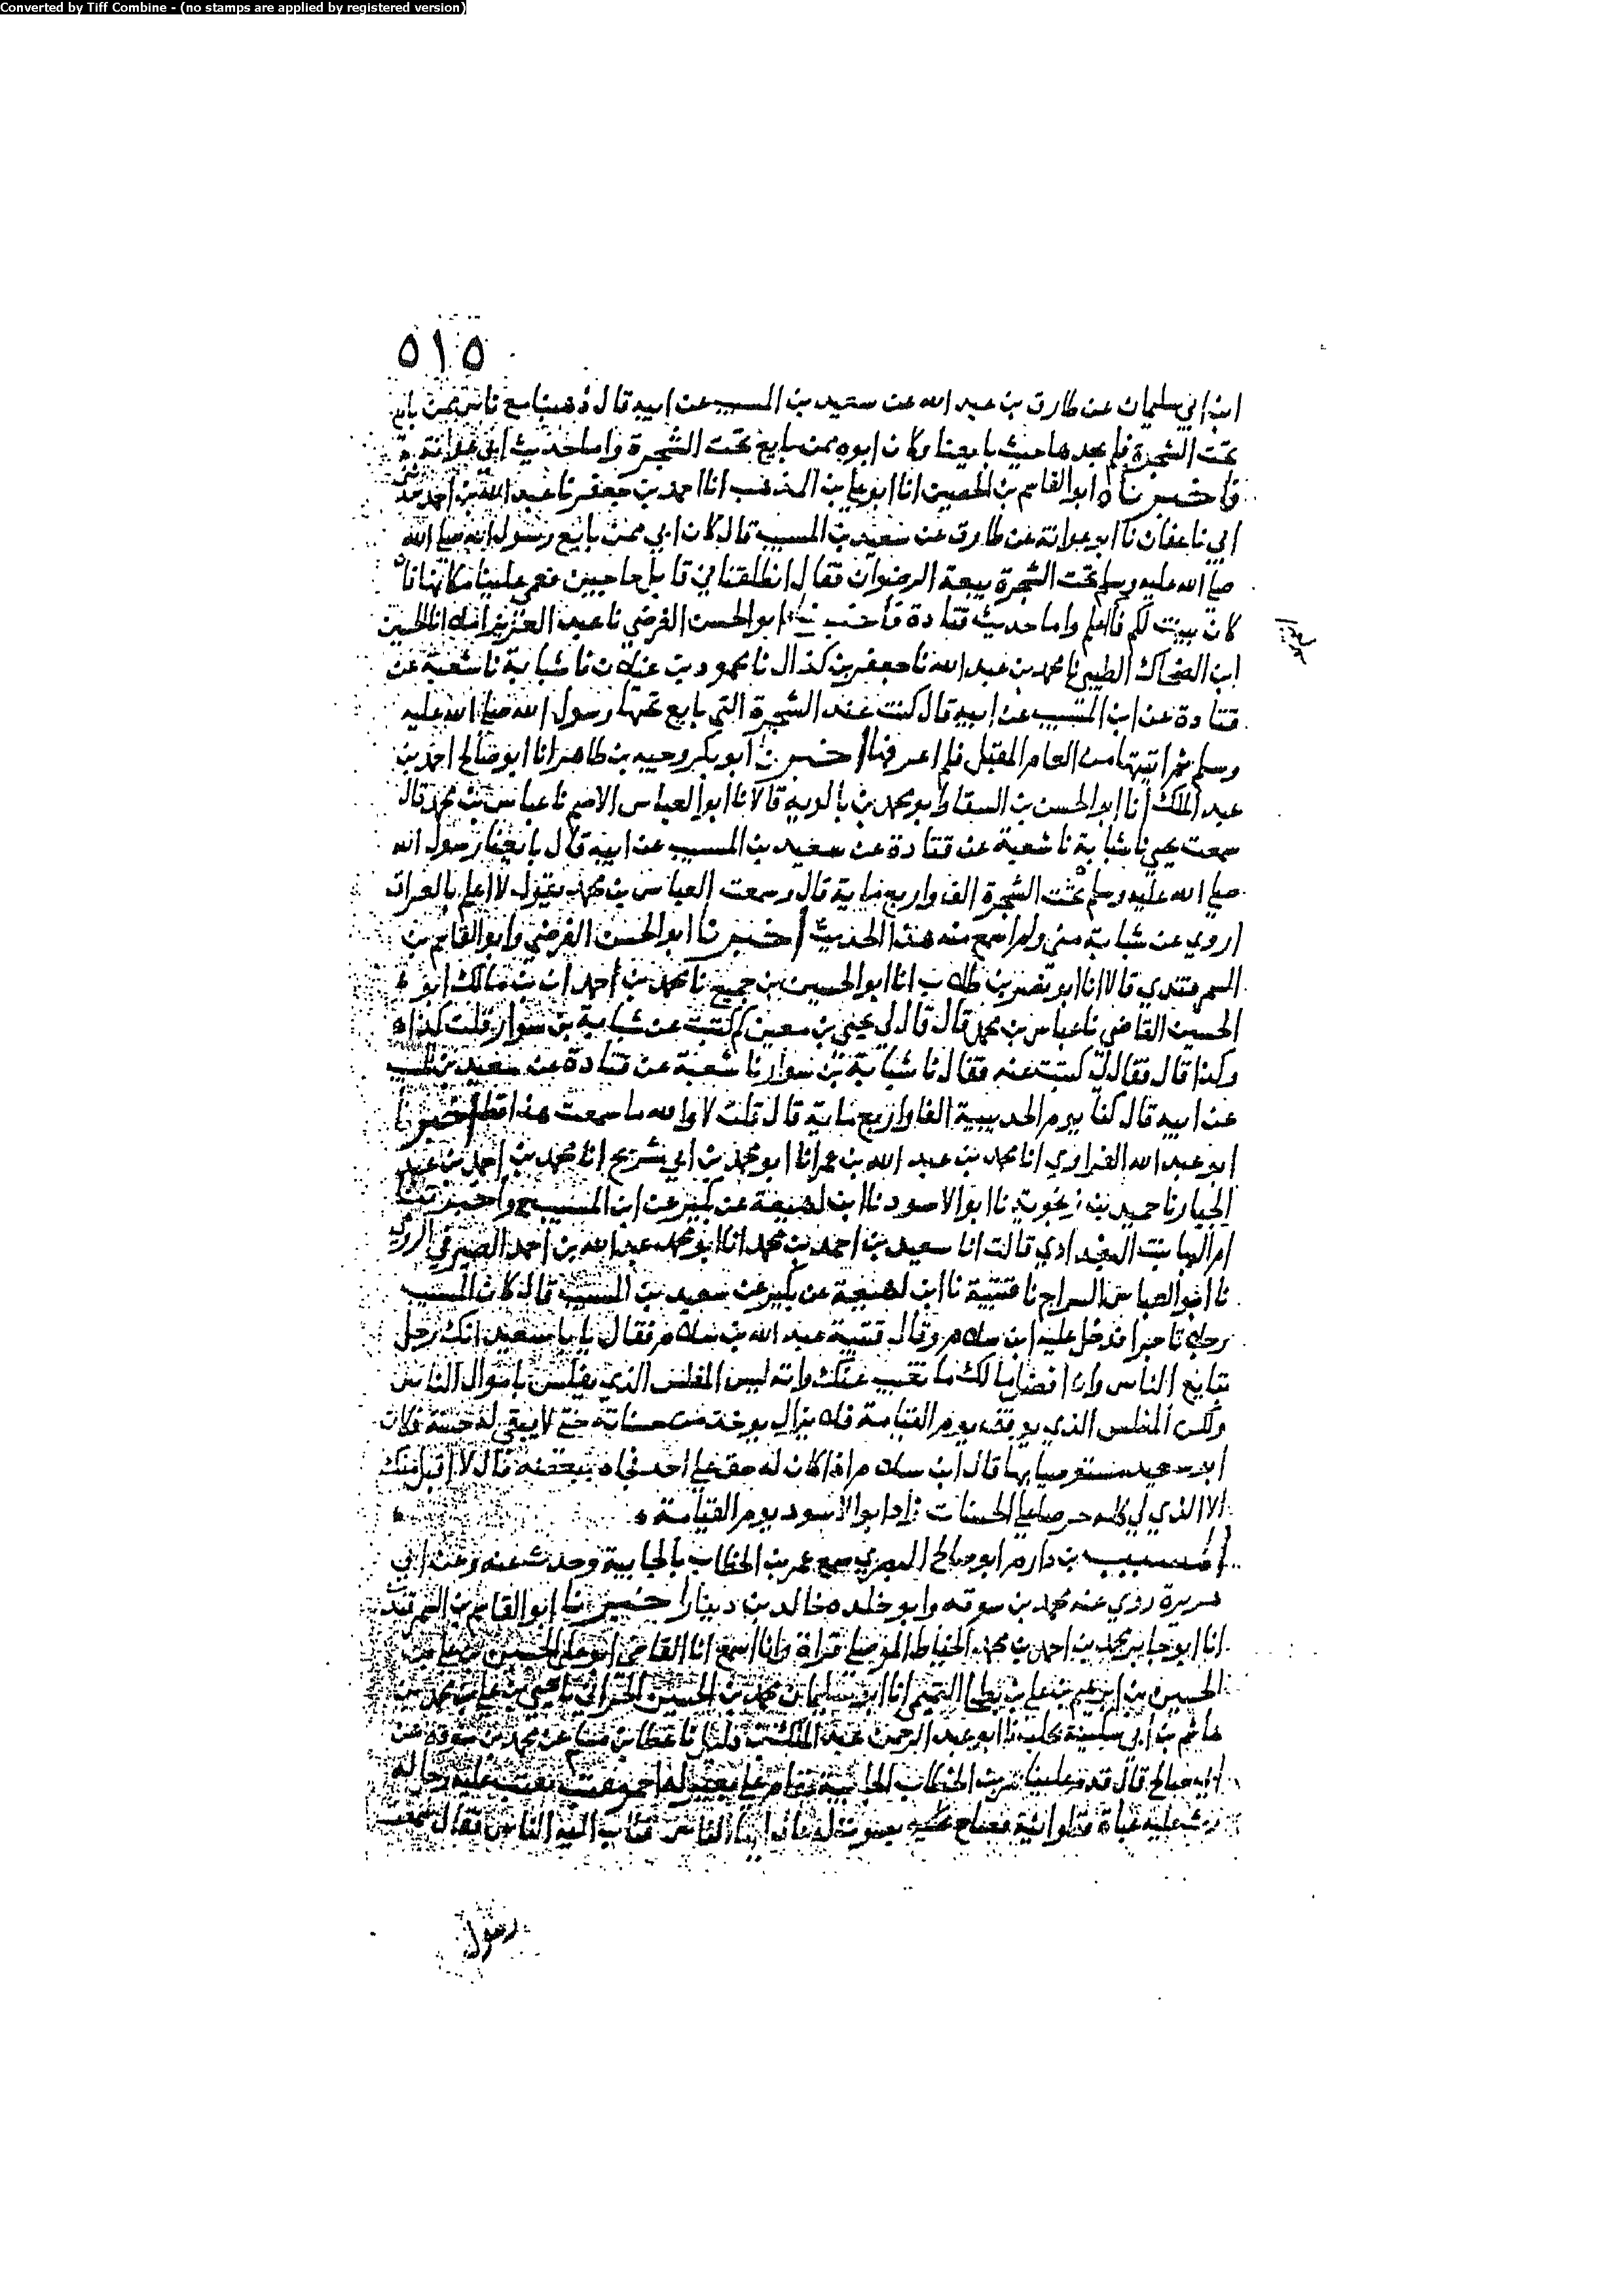 Converted by Tiff Combine - (no stamps are applied by registered version)
٥١٥
ابن ابي سليمان عن طارق بن عبد الله عن سعيد بن المسيب عن ابيه قال ذهبنا مع ناس ممن بايع
تحت الشجرة فلم نجدها حيث بايعنا وكان ابوه ممن بايع تحت الشجرة واما حديث ابي عوانة
فاخبرناه ابو القاسم بن الحصين انا ابو علي بن المذهب انا احمد بن جعفر نا عبد الله بن احمد حدثني
ابي نا عفان نا ابو عوانة عن طارق عن سعيد بن المسيب قال كان ابي ممن بايع رسول الله صلى الله
صلى الله عليه وسلم تحت الشجرة بيعة الرضوان فقال انطلقنا في قابل حاجين فعمي علينا مكانها فان
كان بينت لكم فانتم اعلم واما حديث قتادة فاخبرناه ابو الحسن الفرضي نا عبد العزيز املاء انا الحسين
ابن الضحاك الطيبي نا محمد بن عبد الله نا جعفر بن كزال نا محمود بن غيلان نا شبابة نا شعبة عن
قتادة عن ابن المسيب عن ابيه قال كنت عند الشجرة التي بايع تحتها رسول الله صلى الله عليه
وسلم ثم اتيتها من العام المقبل فلم اعرفها اخبرنا ابو بكر وجيه بن طاهر انا ابو صالح احمد بن
عبد الملك انا ابو الحسن بن السقا وابو محمد بن بالويه قالا نا ابو العباس الاصم نا عباس بن محمد قال
سمعت يحيى نا شبابة نا شعبة عن قتادة عن سعيد بن المسيب عن ابيه قال بايعنا رسول الله
صلى الله عليه وسلم تحت الشجرة الف واربع ماية قال وسمعت العباس بن محمد يقول لا اعلم بالعراق
اروى عن شبابة مني ولم اسمع منه هذا الحديث اخبرنا ابو الحسن الفرضي وابو القاسم بن
السمرقندي قالا انا ابو نصر بن طلاب انا ابو الحسين بن جميع نا محمد بن احمد ابن مالك ابو
الحسين القاضي نا عباس بن محمد قال قال لي يحيى بن معين كم كتبت عن شبابة بن سوار قلت كذا
وكذا قال فقال لي كتبت عنه فقال نا شبابة بن سوار نا شعبة عن قتادة عن سعيد بن المسيب
عن ابيه قال كنا يوم الحديبية الفا واربع ماية قال قلت لا والله ما سمعت هذا قط اخبرنا
ابو عبد الله الفراوي انا محمد بن عبد الله بن عمر انا ابو محمد بن ابي شريح انا محمد بن احمد بن عبد
الجبار نا حميد بن زنجويه نا ابو الاسود نا ابن لهيعة عن بكير عن ابن المسيب ح واخبرتنا
ام البها بنت البغدادي قالت انا سعيد بن احمد بن محمد انا ابو محمد عبد الله بن احمد الصيرفي الرومي
نا ابو العباس السراج نا قتيبة نا ابن لهيعة عن بكير عن سعيد بن المسيب قال كان المسيب
رجلا تاجرا فدخل عليه ابن سلام وقال قتيبة عبد الله بن سلام فقال يا با سعيد انك رجل
تبايع الناس وان افضل مالك ما تغيب عنك وانه ليس المفلس الذي يفلس باموال الناس
ولكن المفلس الذي يوقف يوم القيامة فلا يزال يوخذ من حسناته حتى لا يبقى له حسنة فكان
ابو سعيد مستوصيا بها قال ابن سلام اذا كان له حق على احد فجاه ببعضه قال لا اقبل منك
الا الذي لي كله حرصا على الحسنات زاد ابو الاسود يوم القيامة
المسيب بن دارم ابو صالح البصري سمع عمر بن الخطاب بالجابية وحدث عنه وعن ابي
هريرة روى عنه محمد بن سوقه وابو خلده خالد بن دينار اخبرنا ابو القاسم بن السمرقندي
انا ابو جابر محمد بن احمد بن محمد الخياط الموصلي قراة وانا اسمع انا القاضي ابو علي الحسين بن علي بن
الحسين بن ابراهيم بن علي بن بطحا التميمي انا ابو سليمان محمد بن الحسين الحراني نا يحيى بن علي بن محمد بن
هاشم بن ابي سكينة بحلب نا ابو عبد الرحمن عبد الملك بن دليل نا عطا بن مسلم عن محمد بن سوقه عن
ابي صالح قال قدم علينا عمر بن الخطاب الجابية فقام على بعير له
رث عليه عباة قطوانية فصاح بصوت له عال ايها الناس فثاب اليه الناس فقال سمعت
رسول